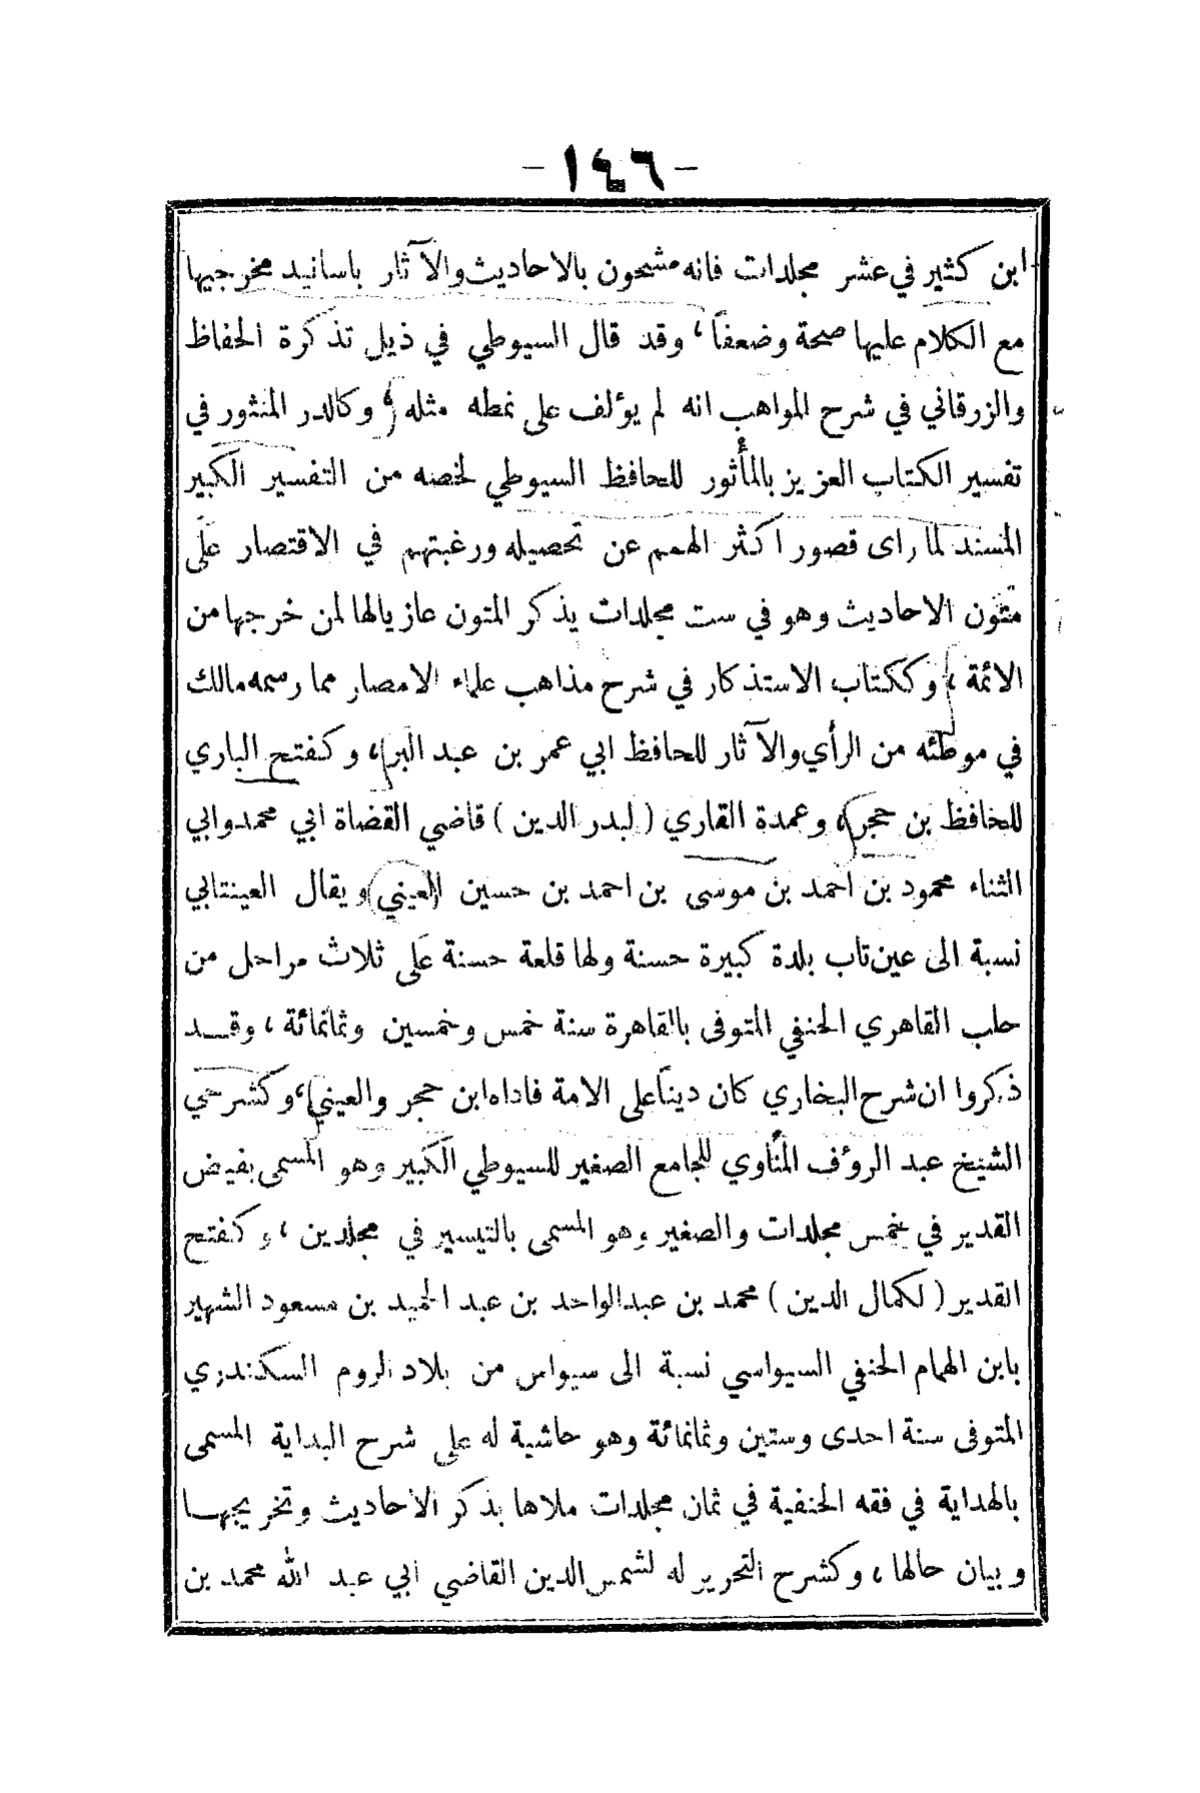 - ١٤٦ -
ابن كثير في عشر مجلدات فانه مشحون بالاحاديث والآثار باسانيد مخرجيها
مع الكلام عليها صحة وضعفاً ، وقد قال السيوطي في ذيل تذكرة الحفاظ
والزرقاني في شرح المواهب انه لم يؤلف على نمطه مثله ، وكالدر المنثور في
تفسير الكتاب العزيز بالمأثور للحافظ السيوطي لخصه من التفسير الكبير
المسند لما راى قصور اكثر الهمم عن تحصيله ورغبتهم في الاقتصار على
متون الاحاديث وهو في ست مجلدات يذكر المتون عازيا لها لمن خرجها من
الائمة ، وككتاب الاستذكار في شرح مذاهب علماء الامصار مما رسمه مالك
في موطئه من الرأي والآثار للحافظ ابي عمر بن عبد البر ، وكفتح الباري
للحافظ بن حجر ، وعمدة القاري ( لبدر الدين ) قاضي القضاة ابي محمد وابي
الثناء محمود بن احمد بن موسى بن احمد بن حسين العيني ويقال العينتابي
نسبة الى عين تاب بلدة كبيرة حسنة ولها قلعة حسنة على ثلاث مراحل من
حلب القاهري الحنفي المتوفى بالقاهرة سنة خمس وخمسين وثمانمائة ، وقد
ذكروا ان شرح البخاري كان ديناً على الامة فاداه ابن حجر والعيني ، وكشرحي
الشيخ عبد الروؤف المناوي للجامع الصغير للسيوطي الكبير وهو المسمى بفيض
القدير في خمس مجلدات والصغير وهو المسمى بالتيسير في مجلدين ، وكفتح
القدير ( لكمال الدين ) محمد بن عبد الواحد بن عبد الحميد بن مسعود الشهير
بابن الهمام الحنفي السيواسي نسبة الى سيواس من بلاد الروم السكندري
المتوفى سنة احدى وستين وثمانمائة وهو حاشية له على شرح البداية المسمى
بالهداية في فقه الحنفية في ثمان مجلدات ملاها بذكر الاحاديث وتخريجها
وبيان حالها ، وكشرح التحرير له لشمس الدين القاضي ابي عبد الله محمد بن